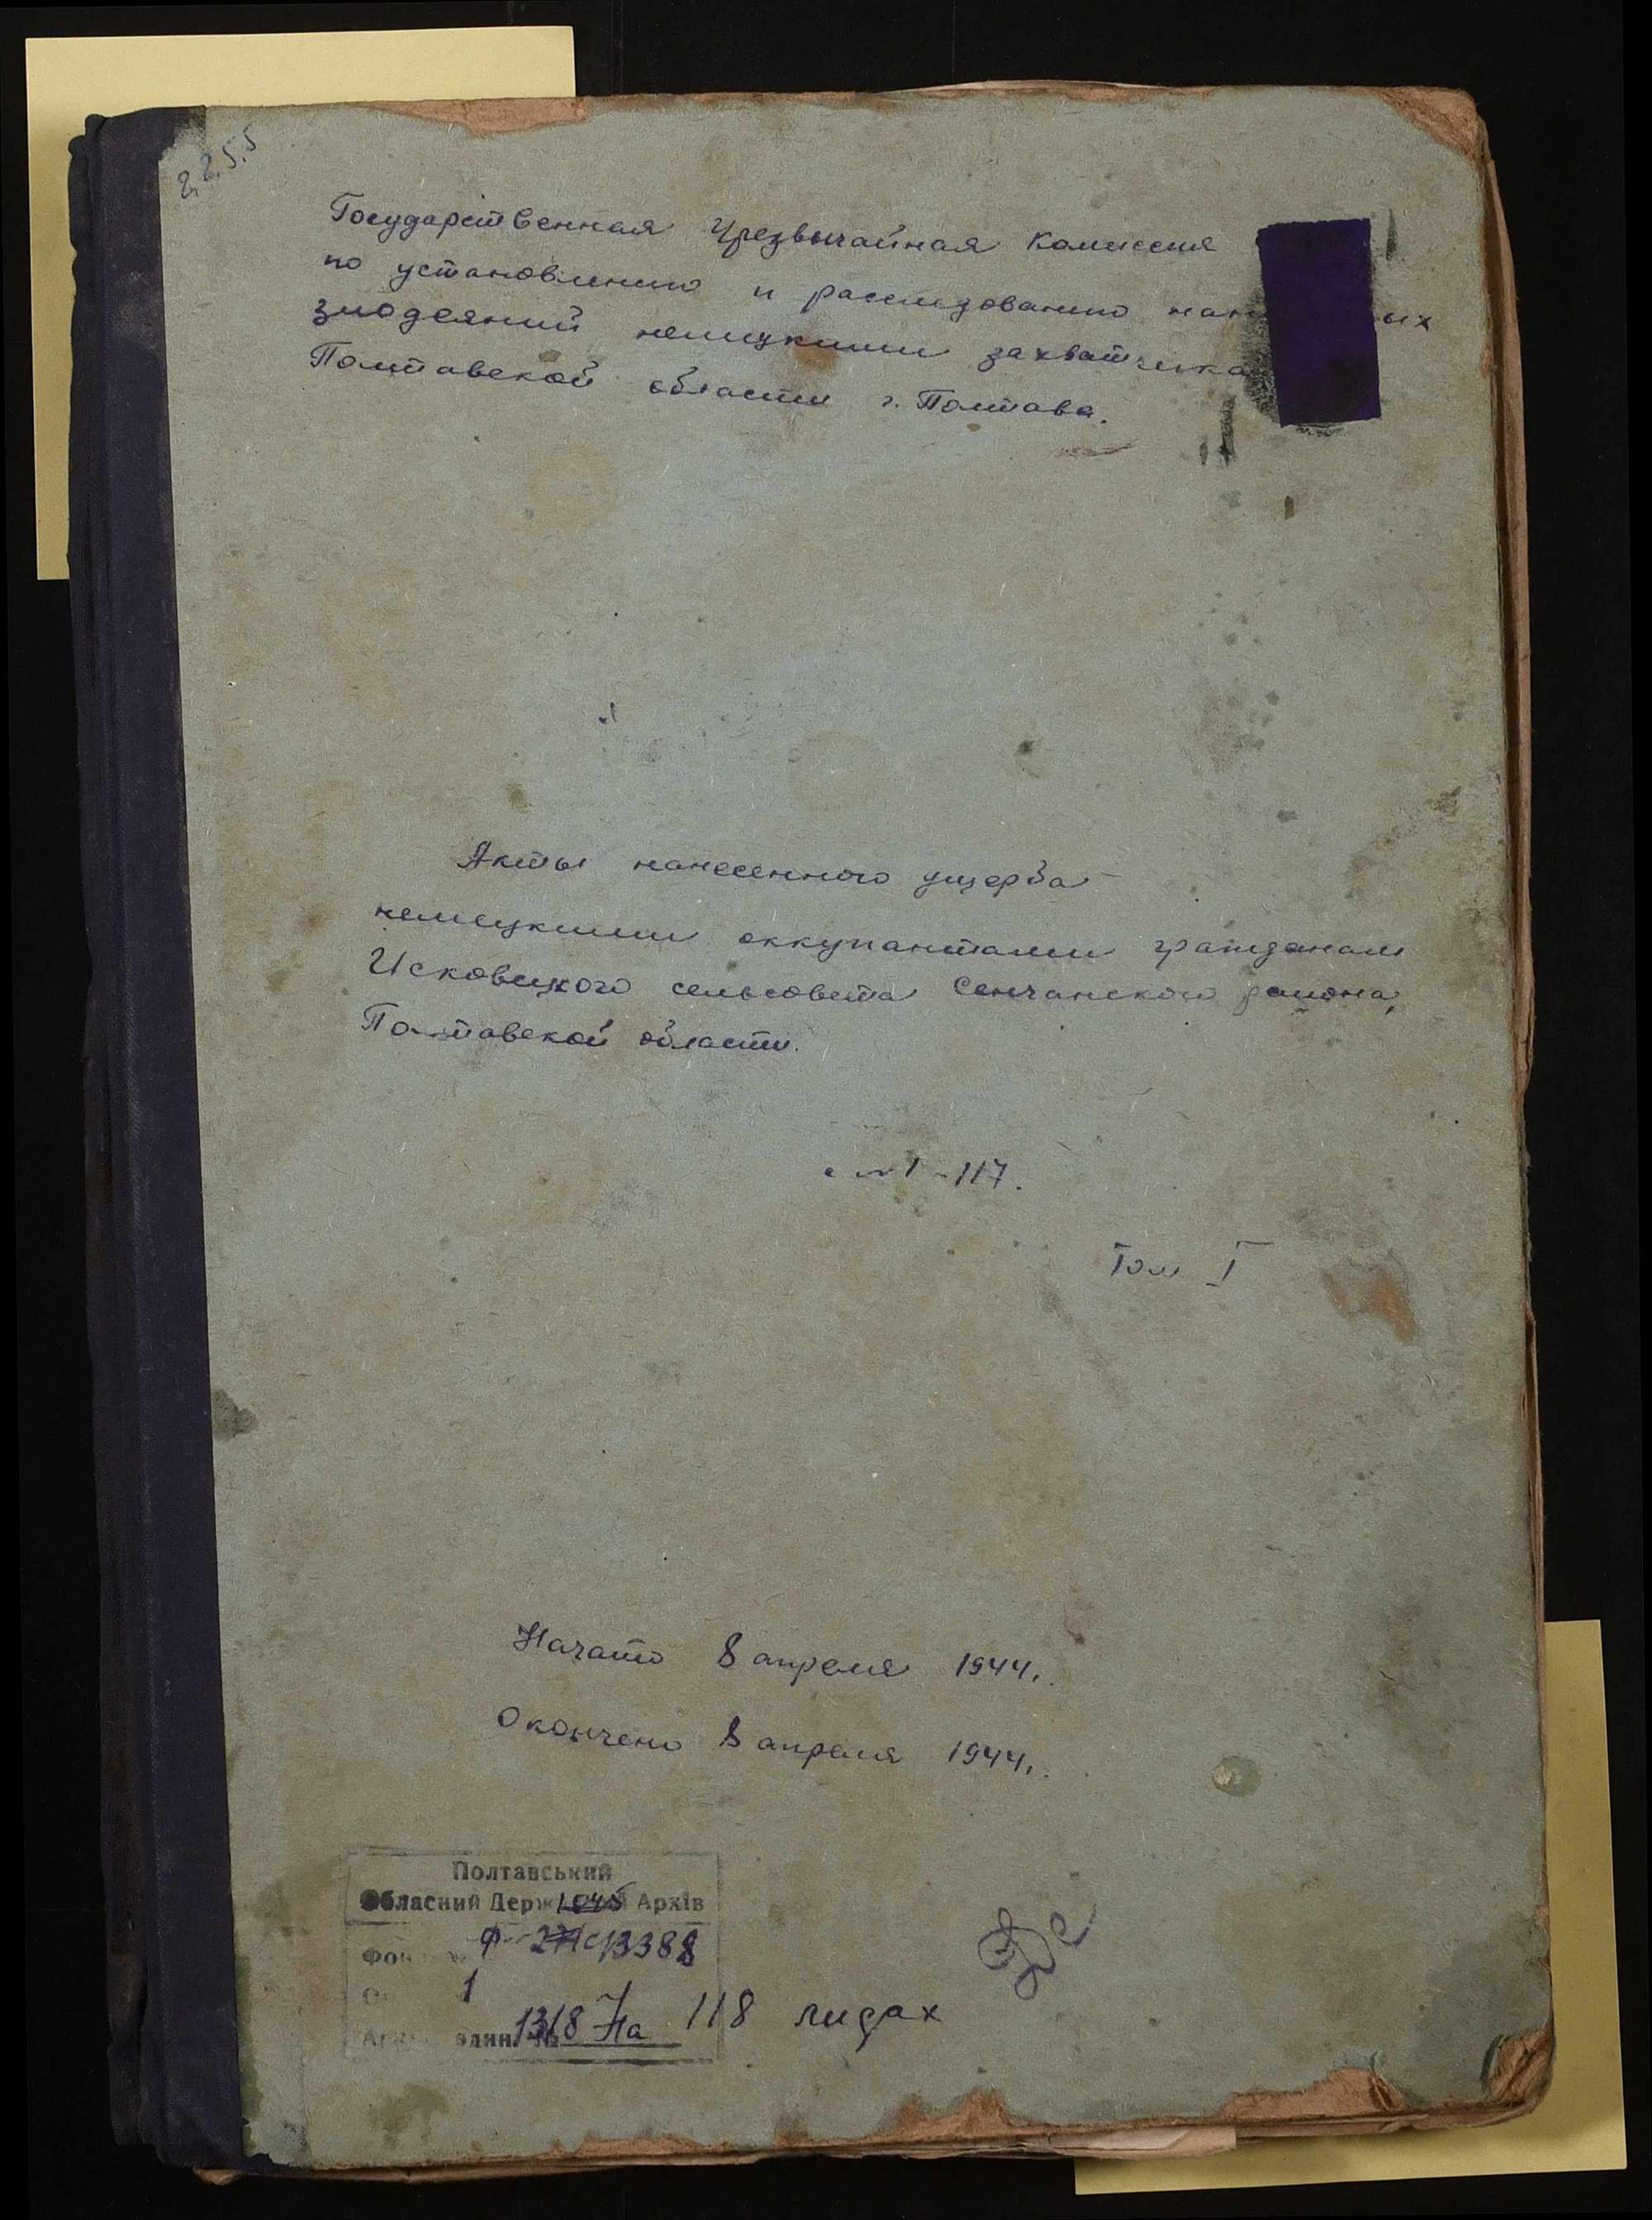 2.2.5.5
Государственная Чрезвычайная Комиссия
по установлению и расследованию нан ых
злодеяний немецкими захватчика
Полтавской области г. Полтава.
Акты нанесенного ущерба
немецкими оккупантами гражданам
Исковецкого сельсовета Сенчанского района,
Полтавской области.
с №1-117.
Том I
Начато 8 апреля 1944.
Окончено 8 апреля 1944.
Полтавський
Обласний Держ Архів
Фон Ф 3388
1
один. № 1318 На 118 лидах